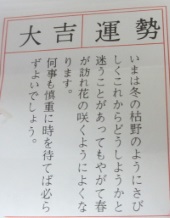 大吉運勢
いまは冬の枯野のようにさび
しくこれからどうしようかと
迷うことがあってもやがて春
が訪れ花の咲くようによくな
ります。
何事も慎重に時を待てば必ら
ずよいでしょう。